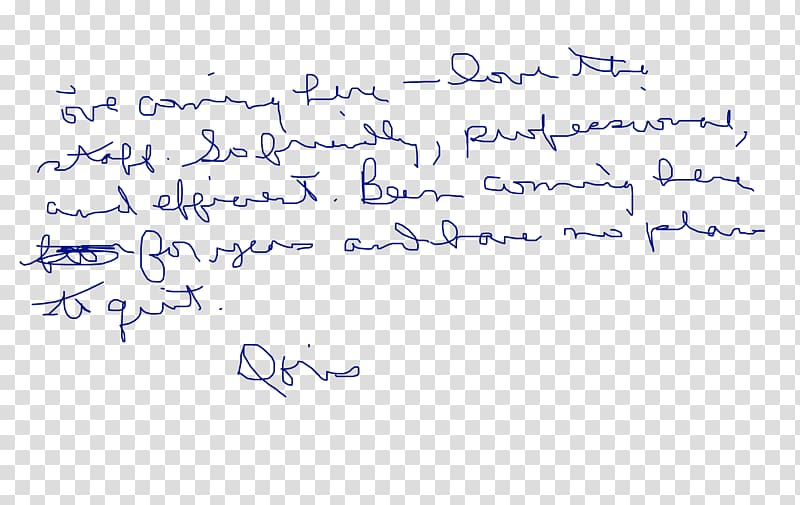 ove coming here – love the
staff. So friendly, professional,
and efficient. Been coming here
for years and have no plans
to quit.